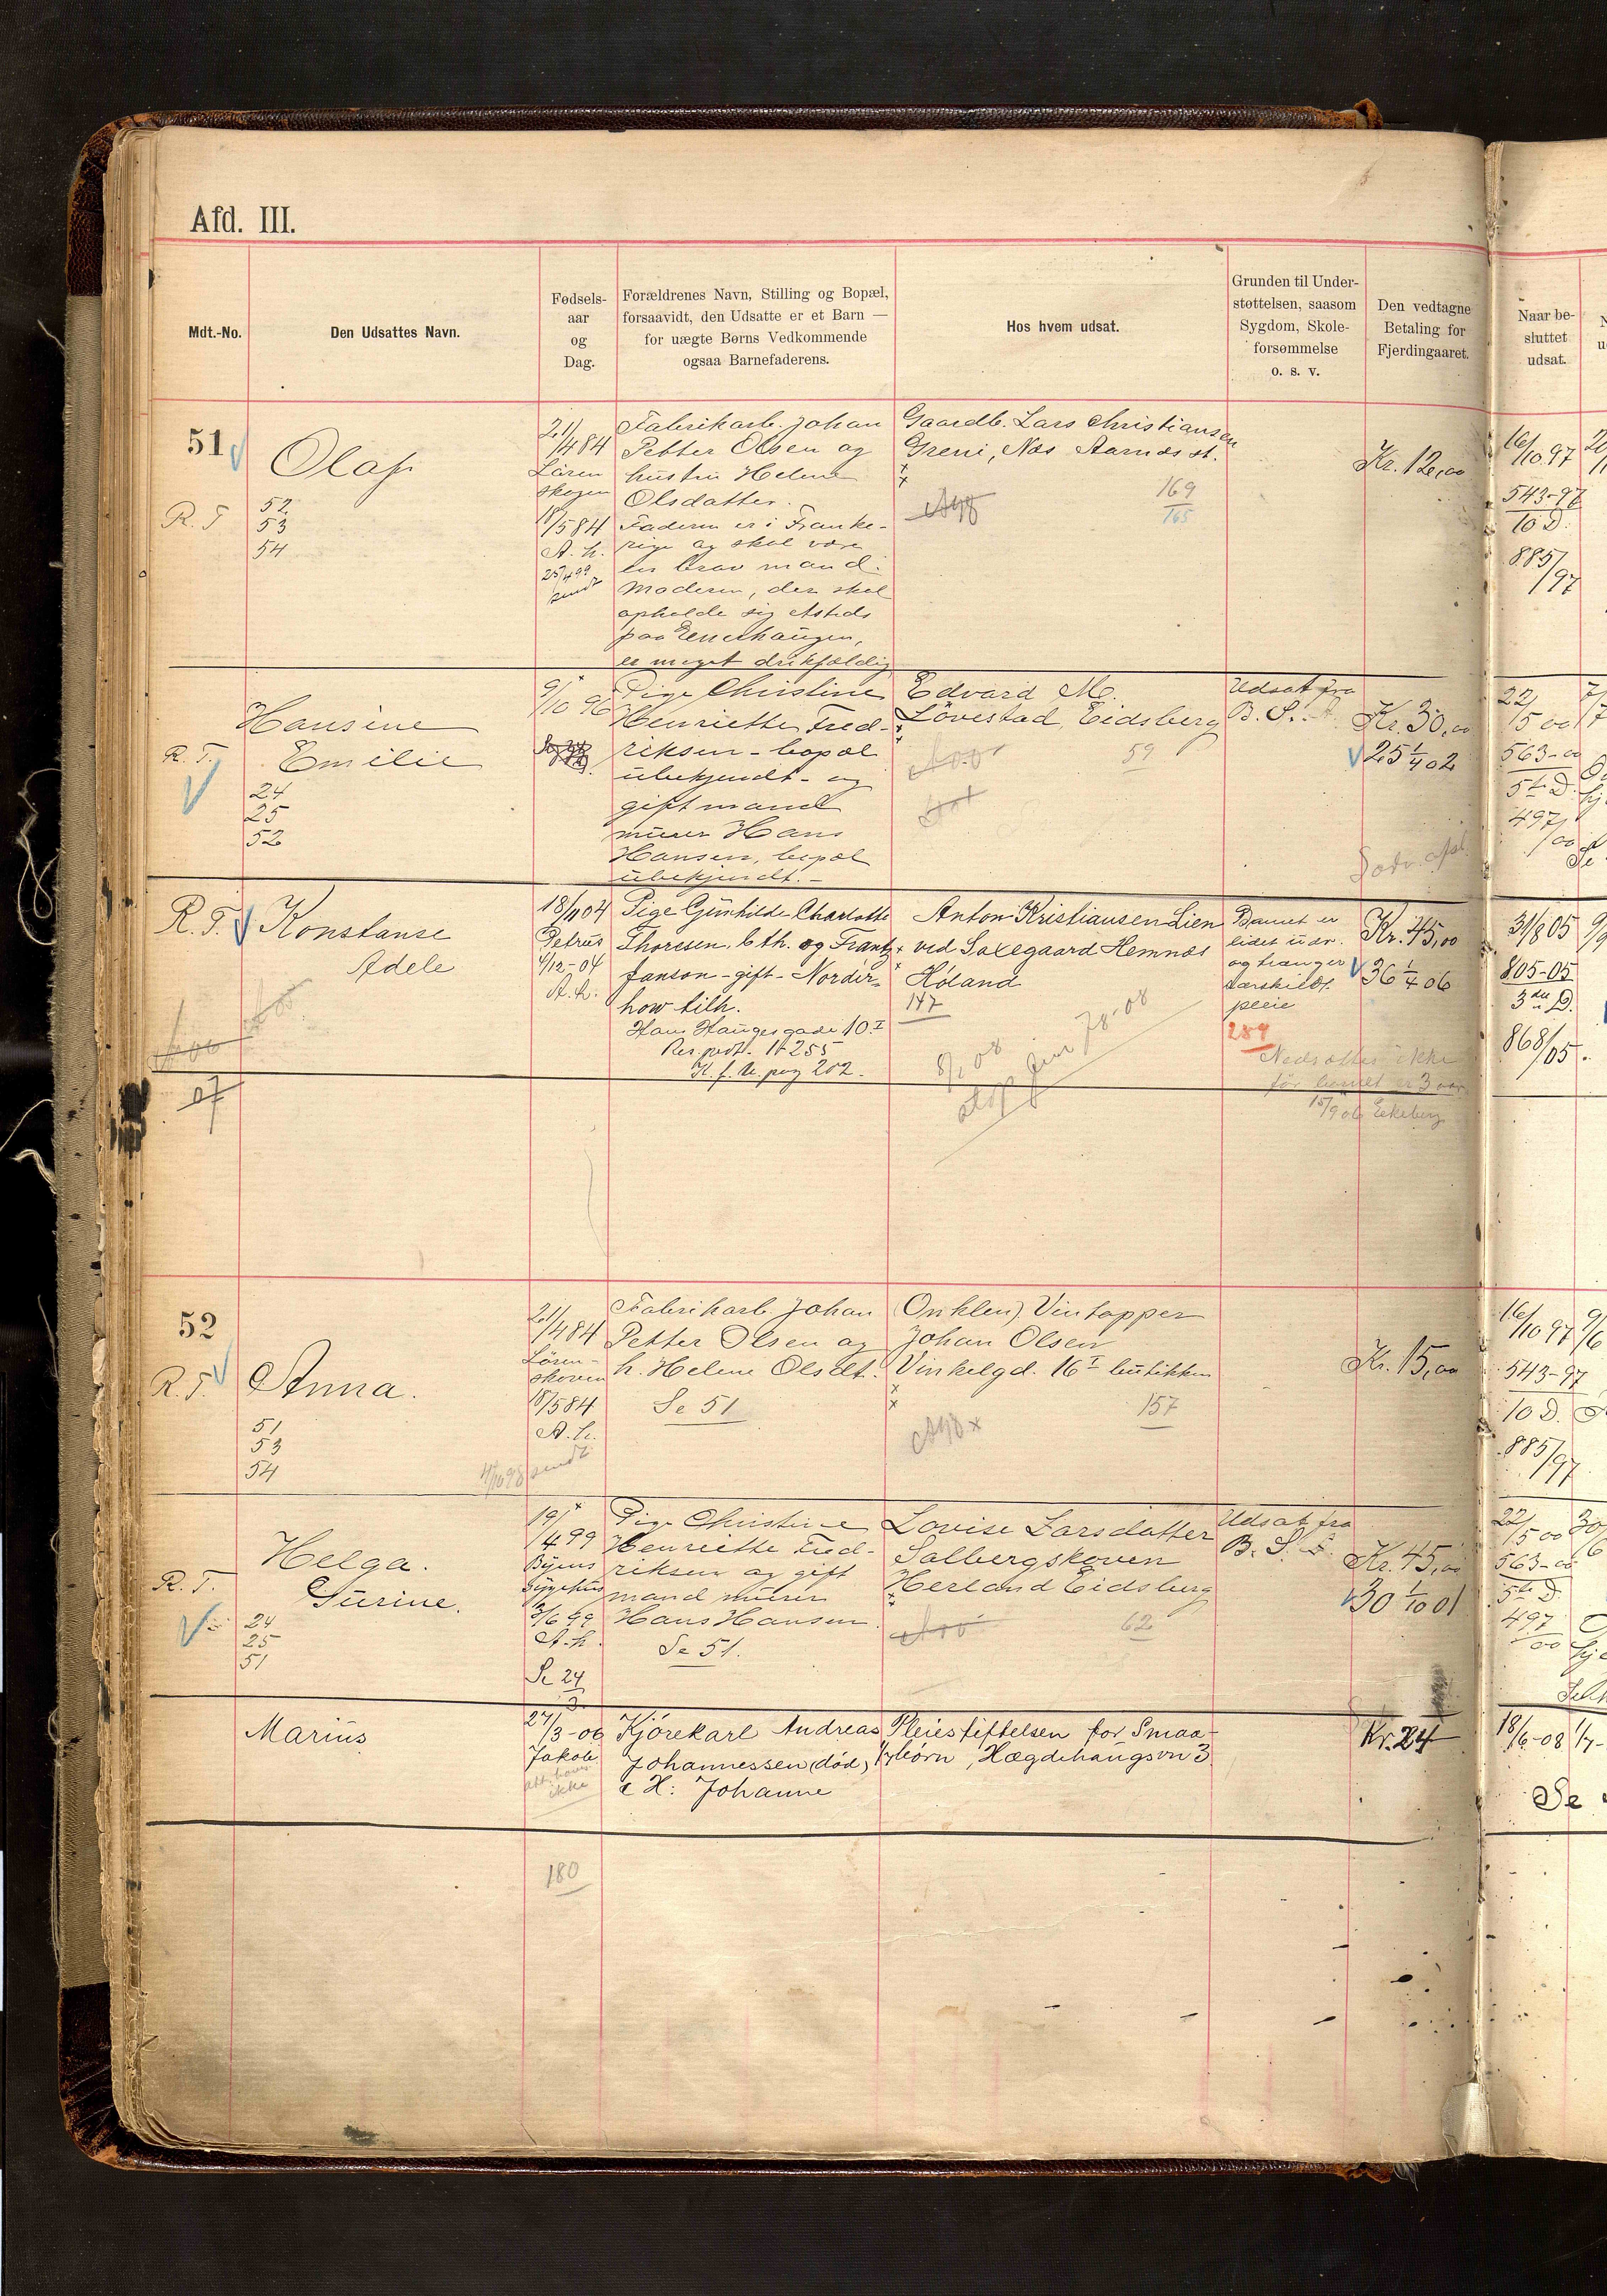 Afd. III.
Mdt.-No.
Den Udsattes Navn.
Fødsels-
aar
og
Dag.
Forældrenes Navn, Stilling og Bopæl,
forsaavidt, den Udsatte er et Barn —
for uægte Børns Vedkommende
ogsaa Barnefaderens.
Hos hvem udsat.
Grunden til Under-
støttelsen, saasom
Sygdom, Skole-
forsømmelse
o. s. v.
Den vedtagne
Betaling for
Fjerdingaaret.
Naar be-
sluttet
udsat.
51
Olaf
R. T
52
53
54
21/484
Lören
skogen
18/584
A. h.
25/499
sendt
Fabrikarb. Johan
Petter Olsen og
hustru Helene
Olsdatter.
Faderen er i Franke-
rige og skal være
en brav mand.
Moderen, der skal
opholde sig etsteds
paa Enerhaugen,
er meget drikfældig
Gaardb. Lars Christiansen
Greni, Nes Aarnæs st.
169
165
Kr. 12,00
16/10.97
543-97
10 D.
885/97
Hansine
Emilie
R. T.
24
25
52
9/10 96
Pige Christine
Henriette Fred-
riksen - bopæl
ubekjendt - og
gift mand
murer Hans
Hansen, bopæl
ubekjendt. -
Edvard M.
Lövestad, Eidsberg
59
Udsat fra
B. S.
Kr. 30,00
25 1/4 02
22/5 00
563-00
5te D.
497/00
R. T.
Konstanse
Adele
18/11 04
Petrus
4/12-04
A. h.
Pige Gunhilde Charlotte
Thoresen, b th. og Frantz
Janson - gift - Norder-
how tilh.
Hans Haugesgade 10 I
Res. prot. 14 255
K. f. U. pag 202.
Anton Kristiansen Lien
ved Saxegaard Hemnæs
Höland
147
Barnet er
lidet u ar.
og trænger
særskildt
pleie
289
Nedsættes ikke
før barnet er 3 aar
15/9 06 Ekeberg
Kr. 45,00
36 1/4 06
31/8 05
805-05
3die D.
868/05.
07
52
R. T.
Anna.
51
53
54
21/484
Lören-
skoven
18/584
A. h.
sendt
Fabrikarb. Johan
Petter Olsen og
h. Helene Olsdt.
Se 51
Onklen) Vintapper
Johan Olsen
Vinkelgd. 16 I butikken
157
Kr. 15,00
16/10 97
543-97
10 D.
885/97
Helga.
Surine.
R. T.
24
25
51
19/499
Byens
Sygehus
3/6 99
A. h.
Se 24
Pige Christine
Henriette Fred-
riksen og gift
mand murer
Hans Hansen
Se 51.
Lovise Larsdatter
Salbergskoven
Herland Eidsberg
62
Udsat fra
B. S.
Kr. 45,00
30 1/10 01
22/5 00
563-00
5te D.
497/00
Marius
27/3-06
Jakob
ikke
Kjörekarl Andreas
Johannessen (död)
& H: Johanne
Pleiestiftelsen for Smaa-
börn, Hægdehaugsvn 3
Kr. 24
18/6-08
Se
180